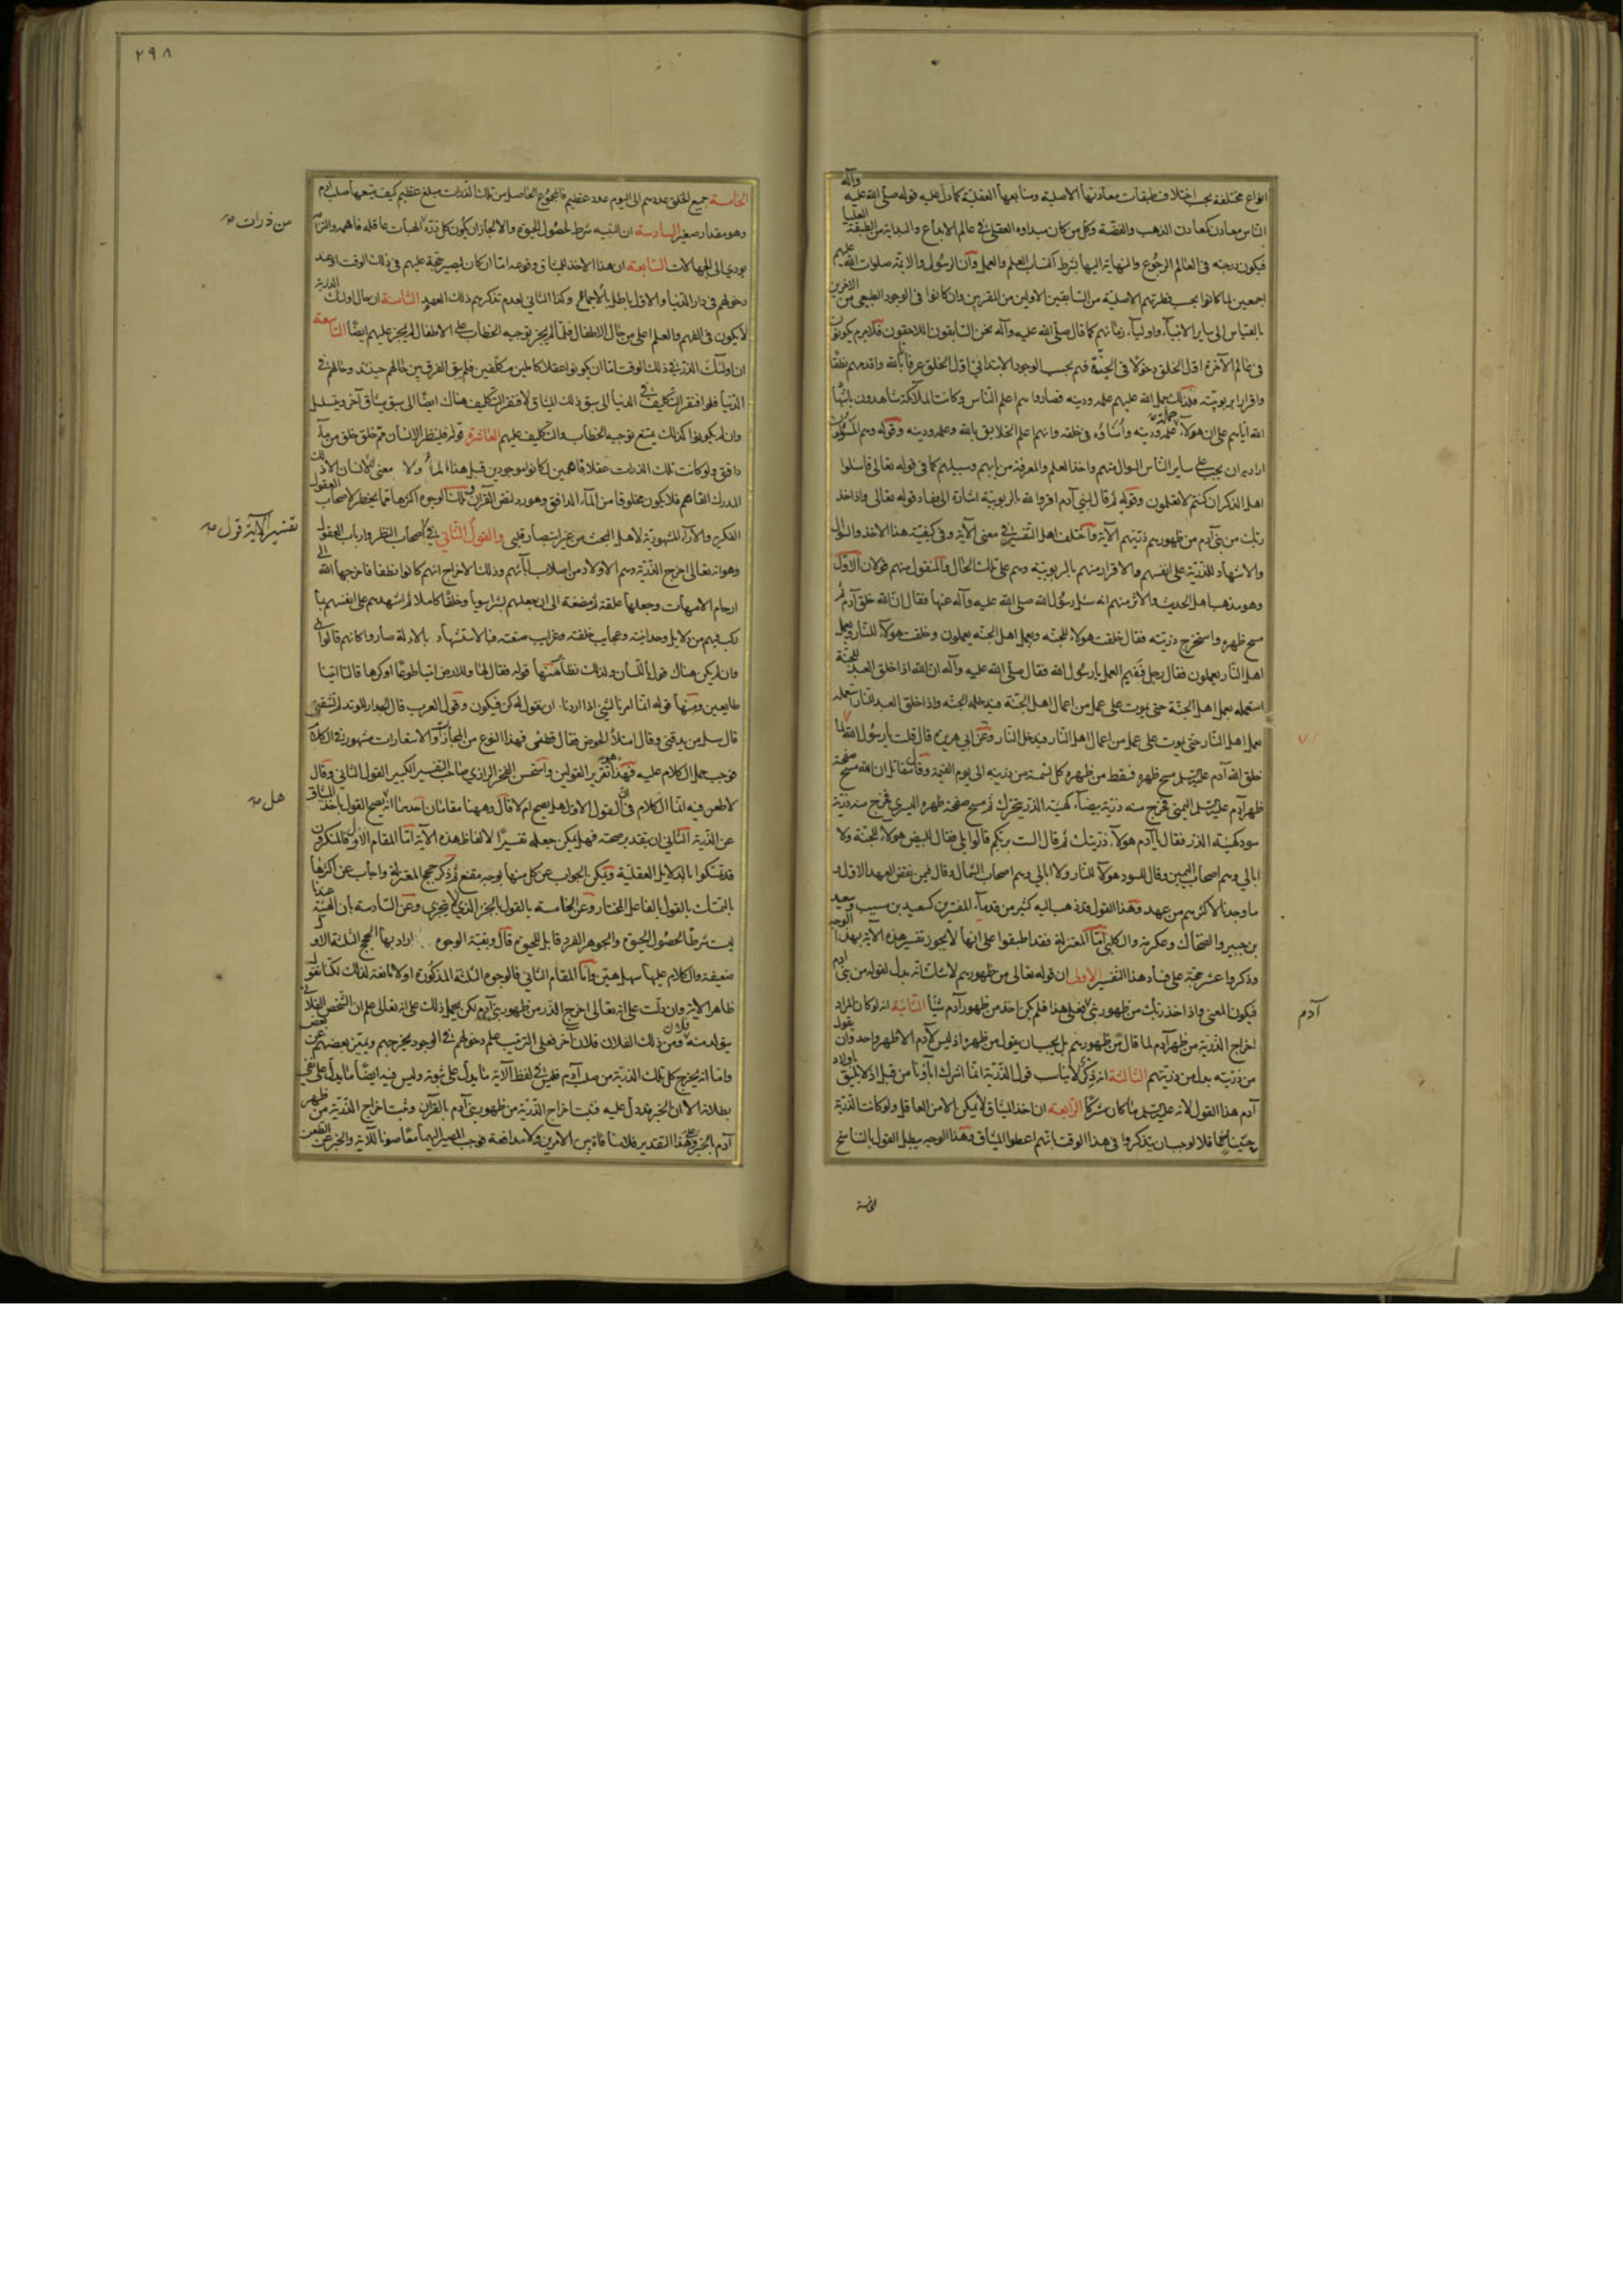 انواع مختلفة بحسب اختلاف طبقات معادنها الاصلية ومنابعها العقلية كما دل عليه قوله صلى الله عليه وآله
الناس معادن كمعادن الذهب والفضة وكل من كان مبداوه العقلى فى عالم الابداع والبداية من الطبقة العليا
فيكون درجته فى العالم الرجوع والنهاية اليها بشرط اكتساب العلم والعمل وان الرسول والائمة صلوات الله عليهم
اجمعين لما كانوا بحسب فطرتهم الاصلية من السابقين الاولين من المقربين وان كانوا فى الوجود الطبيعى من الاخرين
بالقياس الى ساير الانبياء واولياء زمانهم كما قال صلى الله عليه وآله نحن السابقون اللاحقون فلاجرم يكونون
فى عالم الآخرة اول الخلق دخولا فى الجنة فهم بحسب الوجود الابتدائى اول الخلق عرفانا بالله واقدمهم نطقا
واقرارا بربوبيته فلذلك حمل الله عليهم علمه ودينه فصاروا هم اعلم الناس وكانت الملائكة شاهدون باشهاد
الله اياهم على ان هولاء حملة علمه ودينه وأمناؤه فى خلقه وانهم اعلم الخلايق بالله وعلمه ودينه وقوله وهم المسئولون
اراد به ان يجب على ساير الناس السوال منهم واخذ العلم والمعرفة من بابهم وسبيلهم كما فى قوله تعالى فاسئلوا
اهل الذكر ان كنتم لا تعلمون وقوله ثم قال لبنى آدم اقروا لله بالربوبية اشارة الى مفاد قوله تعالى واذ اخذ
ربك من بنى آدم من ظهورهم ذريتهم الآية واختلف اهل التفسير فى معنى الآية وفى كيفية هذا الاخذ والسوال
والاشهاد للذرية على انفسهم والاقرار منهم بالربوبية وهم على تلك الحال والمنقول منهم قولان الاول
وهو مذهب اهل الحديث والاثر منهم انه سئل رسول الله صلى الله عليه وآله عنها فقال ان الله خلق آدم ثم
مسح ظهره واستخرج ذريته فقال خلقت هولاء للجنة وبعمل اهل الجنة يعملون وخلقت هولاء للنار وبعمل
اهل النار يعملون فقال رجل ففيم العمل يا رسول الله فقال صلى الله عليه وآله ان الله اذا خلق العبد للجنة
استعمله بعمل اهل الجنة حتى يموت على عمل من اعمال اهل الجنة فيدخله الجنة واذا خلق العبد للنار استعمله
بعمل اهل النار حتى يموت على عمل من اعمال اهل النار فيدخل النار وعن ابى هريرة قال قلت يا رسول الله لما
خلق الله آدم عليه السلم مسح ظهره فسقط من ظهره كل نسمة من ذريته الى يوم القيمة وقال مقاتل ان الله مسح صفحة
ظهر آدم عليه السلم اليمنى فخرج منه ذرية بيضاء كهيئة الذر يتحرك ثم مسح صفحة ظهره اليسرى فخرج منه ذرية
سود كهيئة الذر فقال يا آدم هولاء ذريتك ثم قال الست بربكم قالوا بلى فقال للبيض هولاء للجنة ولا
ابالى وهم اصحاب اليمين وقال للسود هولاء للنار ولا ابالى وهم اصحاب الشمال وقال فيمن نقض العهد الاول و
ما وجدنا لاكثرهم من عهد وهذا القول قد ذهب اليه كثير من قدماء المفسرين كسعيد بن مسيب وسعيد
بن جبير والضحاك وعكرمة والكلبى اما المعتزلة فقد اطبقوا على انها لا يجوز تفسير هذه الآية بهذا الوجه
وذكروا عشر حجة على فساد هذا التفسير الاولى ان قوله تعالى من ظهورهم لا شك انه بدل لقوله من بنى آدم
فيكون المعنى واذ اخذ ربك من ظهور بنى فعلى هذا فلم يكن اخذ من ظهور آدم شيئا الثانية انه لو كان المراد
اخراج الذرية من ظهر آدم لما قال من ظهورهم بل يجب ان يقول من ظهره اذ ليس لآدم الا ظهر واحد وان يقول
من ذريته بدل من ذريتهم الثالثة انه ذكر لا يناسب قول الذرية انما اشرك آباؤنا من قبل اذ لا يليق باولاد
آدم هذا القول لانه عليه السلم ما كان مشركا الرابعة ان اخذ الميثاق لا يمكن الا من العاقل ولو كانت الذرية
فلا لوجب ان يتذكروا فى هذا الوقت انهم اعطوا الميثاق وهذا الوجه يبطل القول بالتناسخ
الخامسة
آدم
٢٩٨
الخامسة جميع الخلق عددهم الى اليوم عدد عظيم فالمجموع الحاصل من تلك الذرات مبلغ عظيم كيف يتسعها صلب آدم
وهو مقدار صغير السادسة ان البنيه شرط لحصول الحيوة والا لجاز ان يكون كل ذرة الهباء عاقلا فاهما والتزام
يودى الى الجهالات السابعة ان هذا الاخذ للميثاق وقوعه اما ان كان ليصير حجة عليهم فى ذلك الوقت او عند
دخولهم فى دار الدنيا والاول باطل بالاجماع وكذا الثانى لعدم تذكرهم ذلك العهد الثامنة ان حال اولئك الذرية
لا يكون فى الفهم والعلم اعلى من حال الاطفال فلما لم يجز توجيه الخطاب على الاطفال لم يجز عليهم ايضا التاسعة
ان اولئك الذر فى ذلك الوقت اما ان يكونوا عقلا كاملين مكلفين فلم يبق الفرق بين حالهم حينئذ وحالهم فى
الدنيا فلو افتقر التكليف فى الدنيا الى سبق ذلك الميثاق لافتقر التكليف هناك ايضا الى سبق ميثاق آخر ويتسلسل
وان لم يكونوا كذلك يمتنع توجيه الخطاب والتكليف عليهم العاشرة قوله فلينظر الانسان مم خلق خلق من ماء
دافق ولو كانت تلك الذرات عقلا فاهمين لكانوا موجودين قبل هذا الماء ولا معنى للانسان الا ذلك
المدرك الفاهم فلا يكون مخلوقا من الماء الدافق وهو رد لنص القرآن وتلك الوجوه اكثرها مما يخطر لاصحاب العقول
الفكرية والآراء المشهورية لاهل البحث من غير استبصار قلبى والقول الثانى فى اصحاب النظر وارباب العقول
وهو انه تعالى اخرج الذرية وهم الاولاد من اصلاب آبائهم وذلك الاخراج انهم كانوا نطفا فاخرجها الله الى
ارحام الامهات وجعلها علقة ثم مضغة الى ان جعلهم بشرا سويا وخلقا كاملا ثم اشهدهم على انفسهم بما
ركب فيهم من دلايل وحدانيته وعجايب خلقته وغرايب صنعته فبالاستشهاد بالادلة صاروا كانهم قالوا بلى
وان لم يكن هناك قول باللسان ولذلك نظاير منها قوله فقال لها وللارض ائتيا طوعا او كرها قالتا اتينا
طايعين ومنها قوله انما امرنا لشئ اذا اردنا ان نقول له كن فيكون وقول العرب قال الجدار للوتد لم تشقنى
قال سل من يدقنى وقال امتلأ الحوض فقال قطنى فهذا النوع من المجازات والاستعارات مشهور فى الكلام
فوجب حمل الكلام عليه فهذا هو تقرير القولين واستحسن الفخر الرازى صاحب التفسير الكبير القول الثانى وقال
لا طعن فيه انما الكلام فى ان القول الاول هل يصح ام لا قال وههنا مقامان احدهما انه يصح القول باخذ الميثاق
عن الذرية الثانى ان بتقدير صحته فهل يمكن جعله تفسيرا لالفاظ هذه الآية اما المقام الاول فالمنكرون
قد تمسكوا بالدلايل العقلية ويمكن الجواب عن كل منها بوجه مقنع ثم ذكر حجج المعتزلة واجاب عن اكثرها
بالتمسك بالقول بالفاعل المختار وعن الخامسة بالقول بالجزء الذى لا يتجزى وعن السادسة بان البنية عندنا
ليست شرطا لحصول الحيوة والجوهر الفرد قابل للحيوة قال وبقية الوجوه اراد بها الحجج الثلثة الاول
ضعيفة والكلام عليها سهل هين واما المقام الثانى فالوجوه الثلثة المذكورة اولا مانعة لذلك لكنا نقول
ظاهر الآية وان دلت على انه تعالى اخرج الذر من ظهور بنى آدم لكن يحمل ذلك على انه تعالى علم ان الشخص الفلانى
يتولد منه فلان ومن ذلك الفلان فلان آخر فعلى الترتيب علم دخولهم فى الوجود يخرجهم ويميز بعضهم عن بعض
واما انه يخرج كل تلك الذرية من صلب آدم فليس فى لفظ الآية ما يدل على ثبوته وليس فيه ايضا ما يدل على نفى
بطلانه الا ان الخبر قد دل عليه فثبت اخراج الذرية من ظهور بنى آدم بالقرآن وثبت اخراج الذرية من ظهر
آدم بالخبر وعلى هذا التقدير فلا منافاة بين الامرين ولا مدافعة فوجب المصير اليهما معا صونا للآية والخبر عن الطعن
من ذرات
تفسير الآية قول
هل